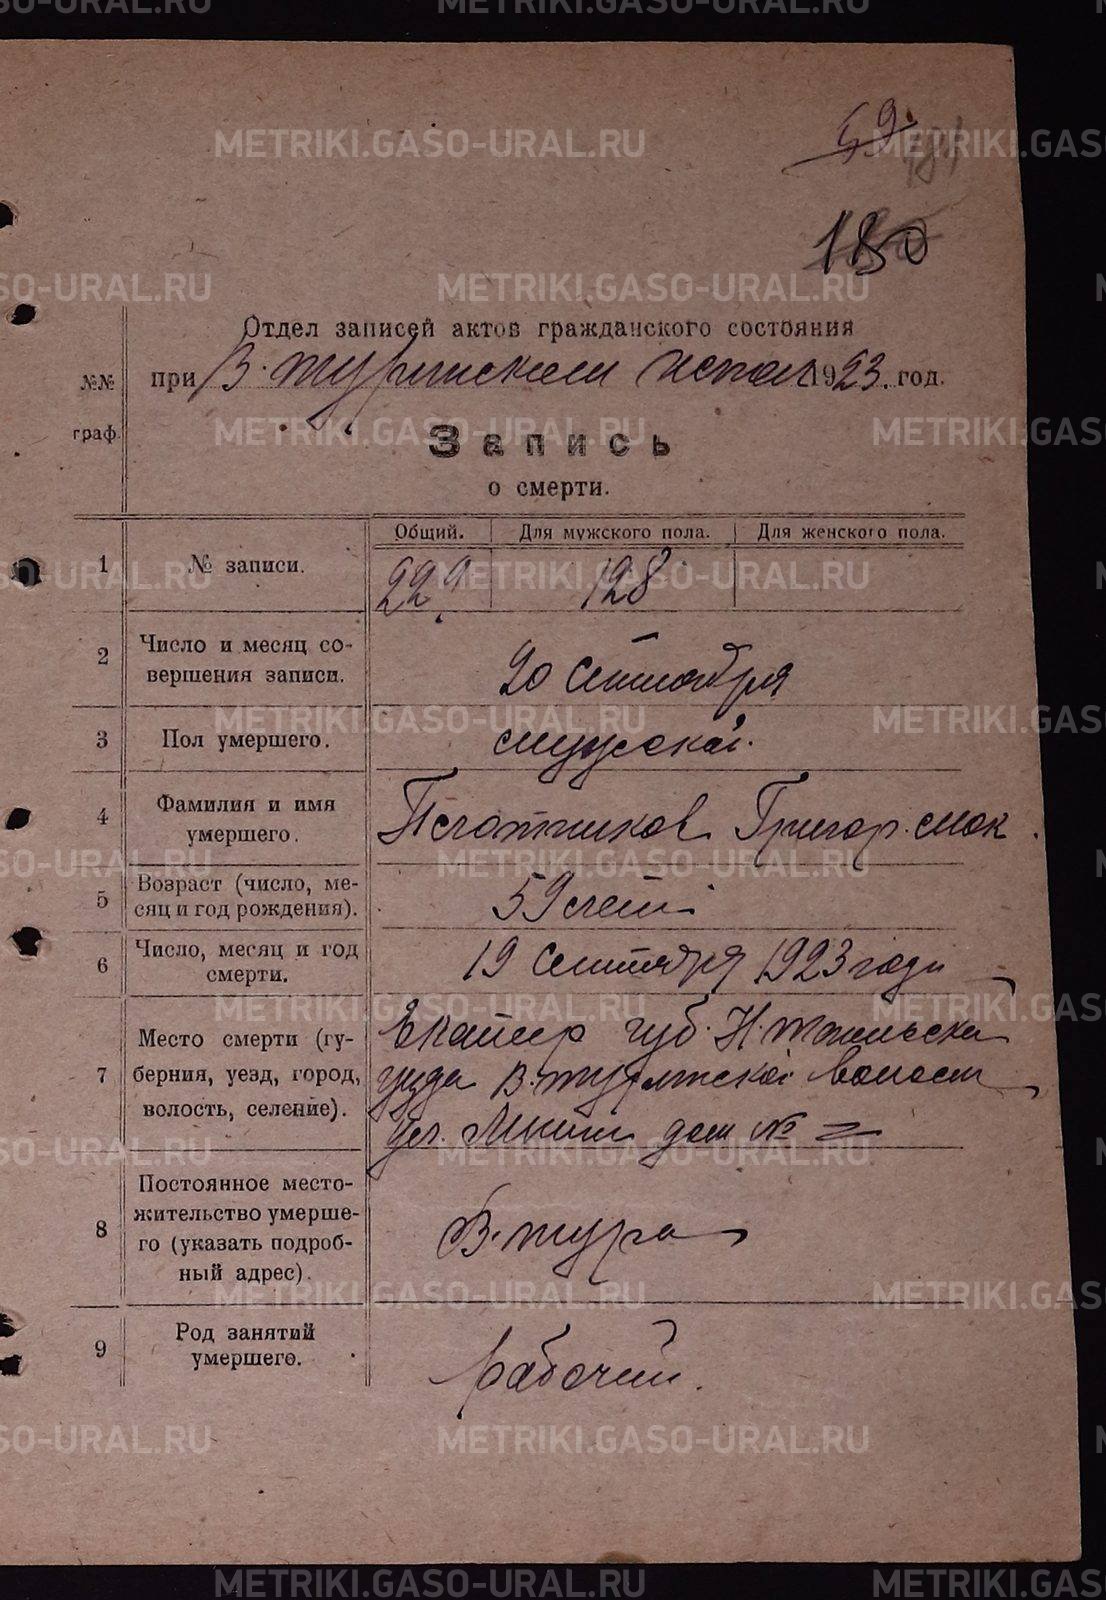 METRIKI.GASO-URAL.RU
180
Отдел записей актов гражданского состояния
при В. Туринском испол 1923. год.
№№
граф.
Запись
о смерти.
Общий. Для мужского пола. Для женского пола.
1 № записи. 229 128
2 Число и месяц со-
вершения записи. 20 сентября
3 Пол умершего. мужской.
4 Фамилия и имя
умершего. Плотников Григор.
5 Возраст (число, ме-
сяц и год рождения). 59 лет
6 Число, месяц и год
смерти. 19 сентября 1923 года
7 Место смерти (гу-
берния, уезд, город,
волость, селение).
Екатер губ. Н. Тагильска
уезда В. Туринской волости
ул. дом № 2
8 Постоянное место-
жительство умерше-
го (указать подроб-
ный адрес). В. Тура
9 Род занятий
умершего. Рабочий.